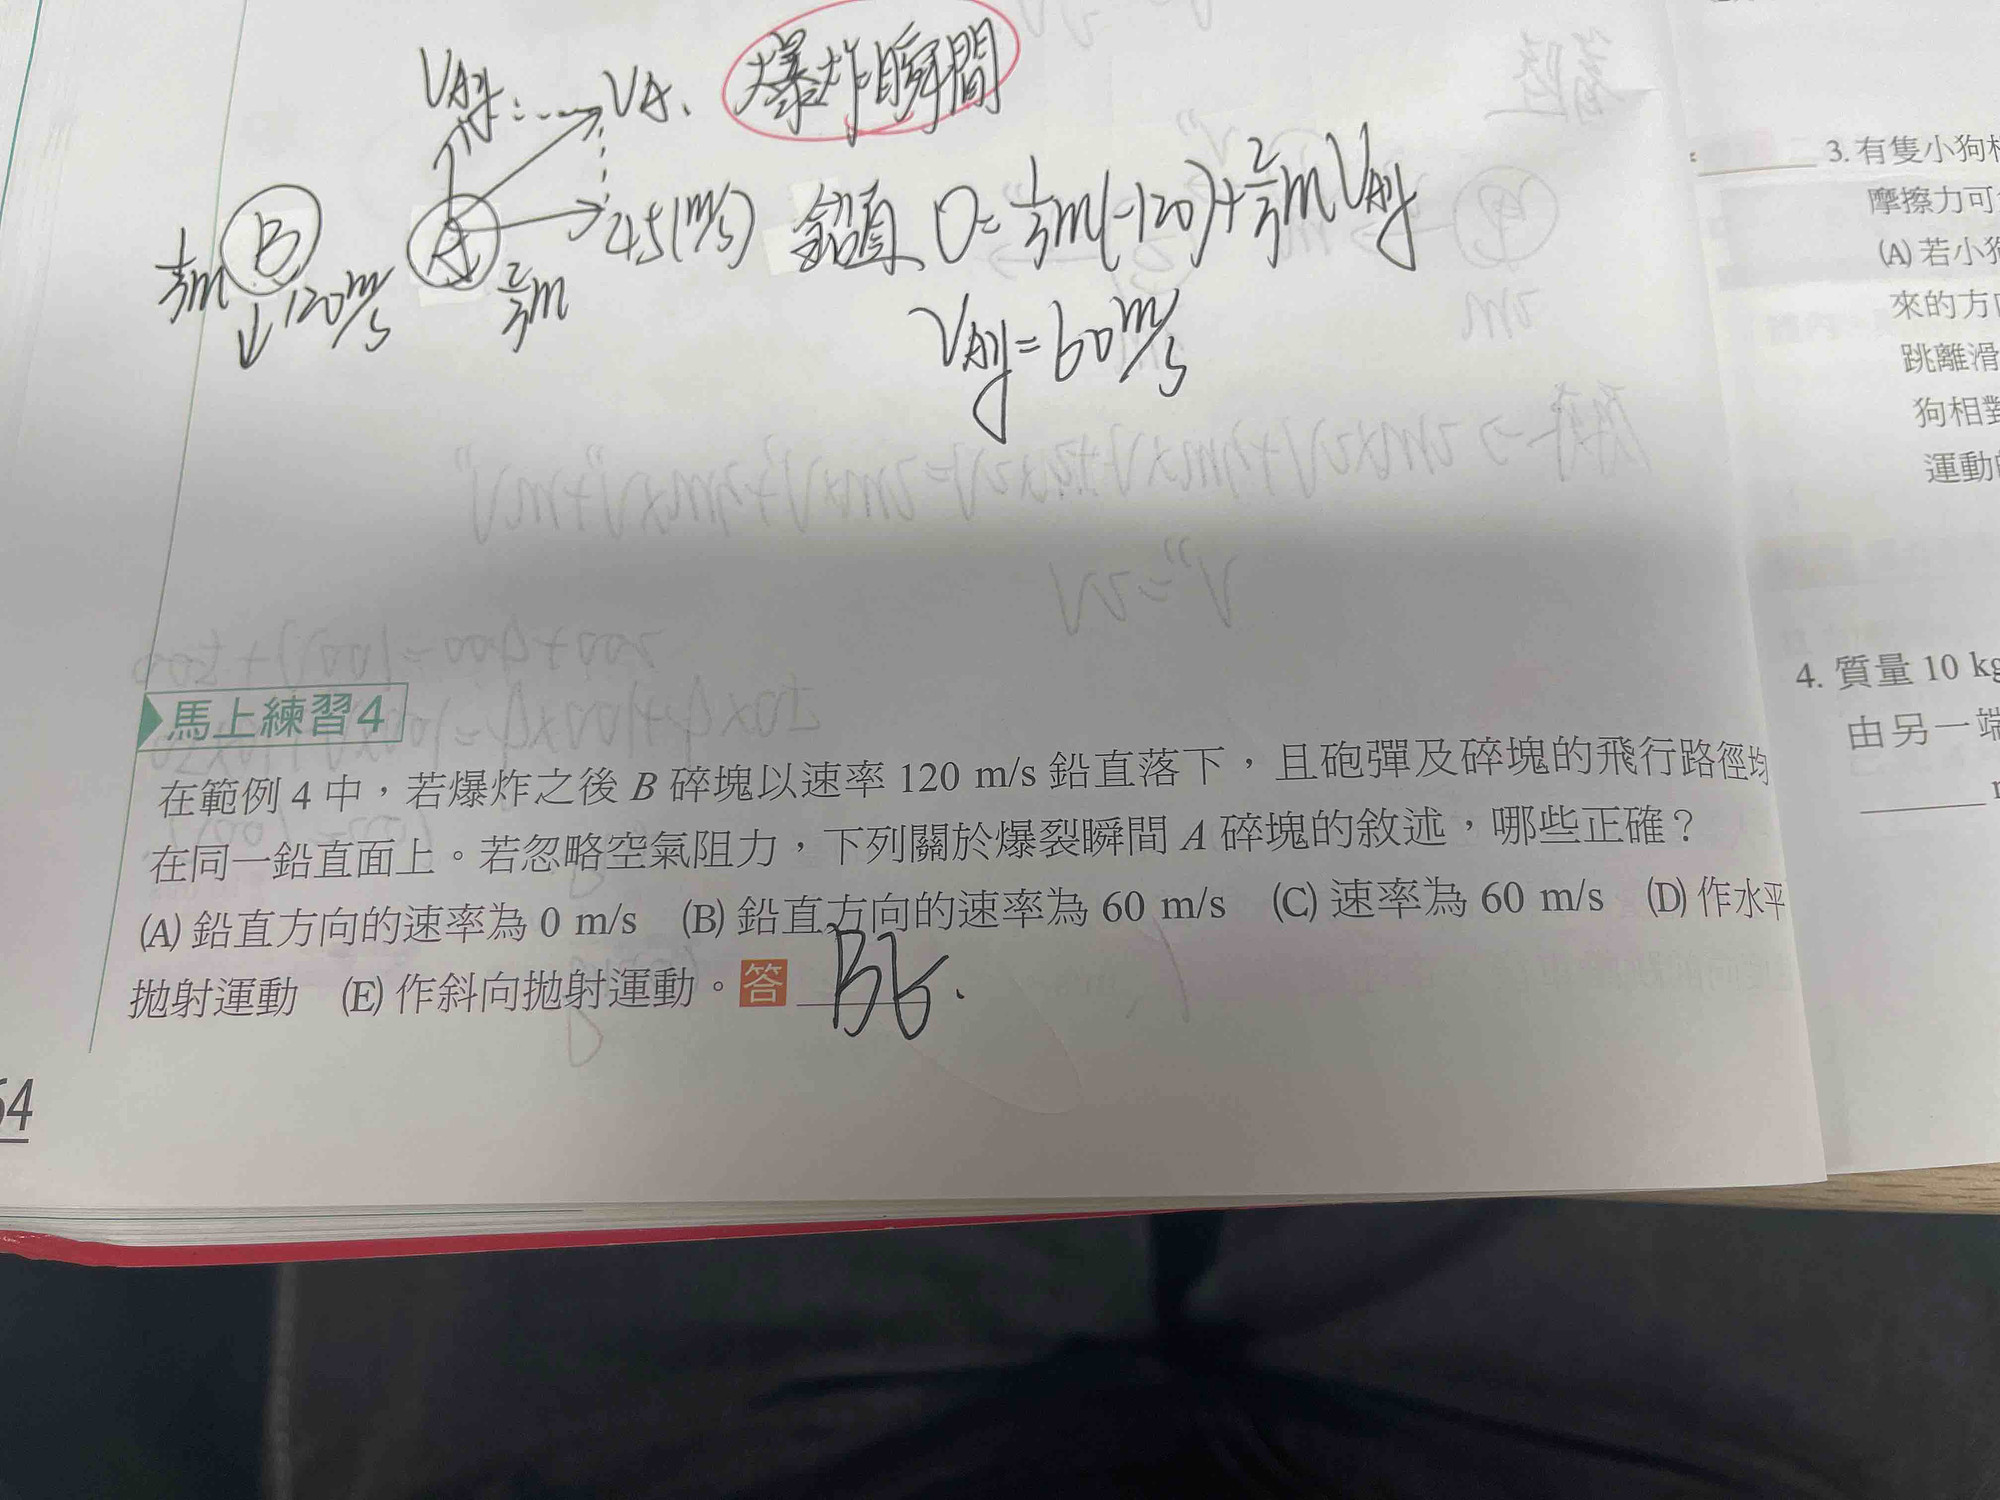 VAy VA. 爆炸瞬間
B A 45(m/s) 鉛直 0=1/3m(-120)+2/3mVAy
1/3m 120m/s 2/3m
VAy=60m/s
V"=2V
馬上練習4
在範例 4 中，若爆炸之後 B 碎塊以速率 120 m/s 鉛直落下，且砲彈及碎塊的飛行路徑均
在同一鉛直面上。若忽略空氣阻力，下列關於爆裂瞬間 A 碎塊的敘述，哪些正確？
(A) 鉛直方向的速率為 0 m/s (B) 鉛直方向的速率為 60 m/s (C) 速率為 60 m/s (D) 作水平
拋射運動 (E) 作斜向拋射運動。答 BE.
54
3. 有隻小狗
摩擦力可
(A) 若小狗
來的方向
跳離滑
狗相對
運動
4. 質量 10 kg
由另一端